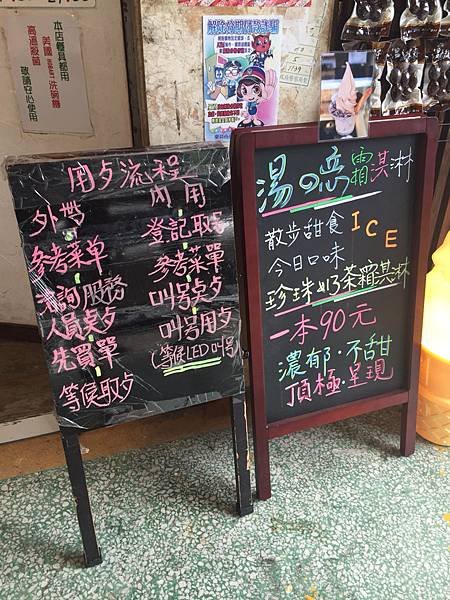 本店餐具都用
美國
洗碗機
高溫殺菌
敬請安心使用
用夕流程
外帶
參考菜单
洽詢服務
人員桌夕
先買單
等侯取夕
內用
登記取号
參考菜單
叫号桌夕
叫号用夕
(等侯LED叫号)
湯の恋 霜淇淋
散步甜食 ICE
今日口味
珍珠奶茶霜淇淋
一本90元
濃郁·不甜
頂極·呈現